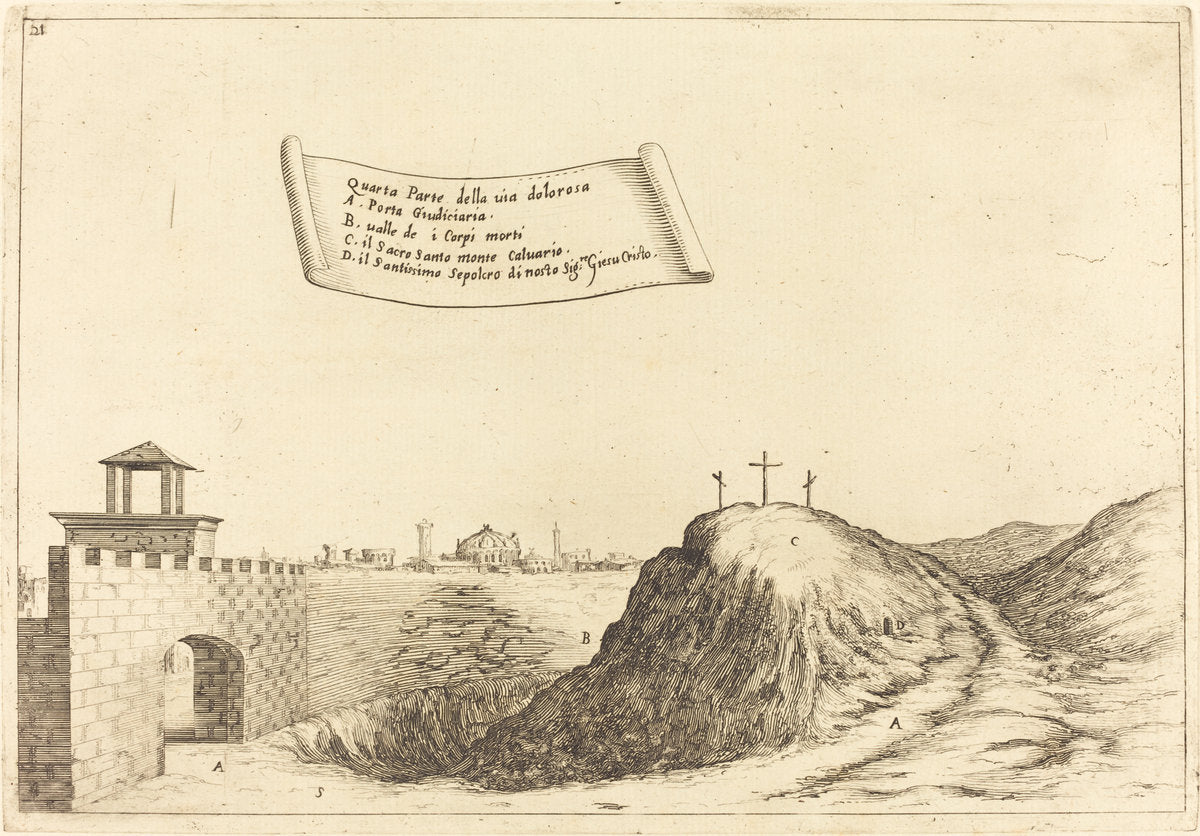 21
Quarta Parte della uia dolorosa
A. Porta Giudiciaria.
B. ualle de i Corpi morti
C. il Sacro Santo monte Caluario.
D. il Santissimo Sepolcro di nosto Sig.re Giesu Cristo.
C
D
B
A
A
S